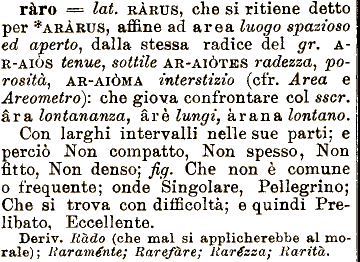 ràro = lat. RÀRUS, che si ritiene detto
per *ARÀRUS, affine ad area luogo spazioso
ed aperto, dalla stessa radice del gr. A-
R-AIÒS tenue, sottile AR-AIÒTES radezza, po-
rosità, AR-AIÒMA interstizio (cfr. Area e
Areometro): che giova confrontare col sscr.
âra lontananza, ârè lungi, àrana lontano.
Con larghi intervalli nelle sue parti; e
perciò Non compatto, Non spesso, Non
fitto, Non denso; fig. Che non è comune
o frequente; onde Singolare, Pellegrino;
Che si trova con difficoltà; e quindi Pre-
libato, Eccellente.
Deriv. Ràdo (che mal si applicherebbe al mo-
rale); Raraménte; Rarefàre; Rarézza; Rarità.